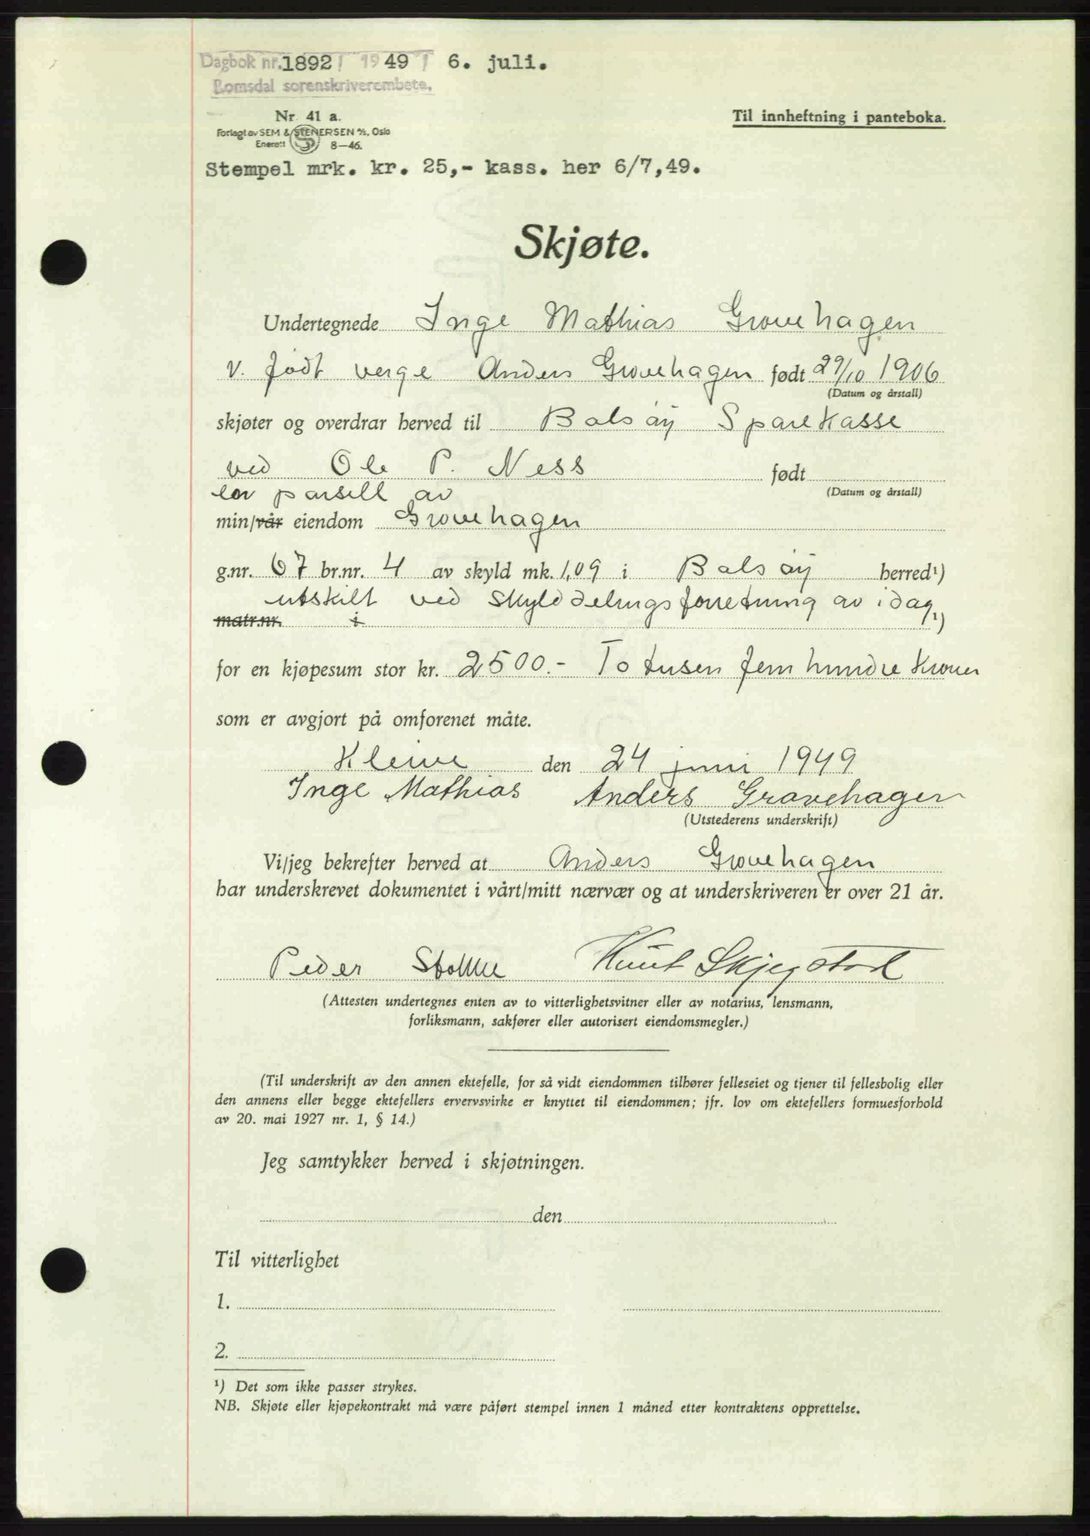 Dagbok nr. 1892 / 1949 / 6. juli.
Romsdal sorenskriverembete.
Nr. 41 a.
Til innheftning i panteboka.
Forlagt av SEM & STENERSEN A/S, Oslo
Enerett 8—46.
Stempel mrk. kr. 25,- kass. her 6/7,49.
Skjøte.
Undertegnede Inge Mathias Grovehagen
v. født verge Anders Grovehagen født 29/10 1906
(Datum og årstall)
skjøter og overdrar herved til Bolsøy Sparekasse
ved Ole P. Ness født
(Datum og årstall)
en parsell av
min/vår eiendom Grovehagen
g.nr. 67 br.nr. 4 av skyld mk. 1,09 i Bolsøy herred¹)
utskilt ved skylddelingsforretning av idag
matr.nr. i ¹)
for en kjøpesum stor kr. 2500.- To tusen fem hundre Kroner
som er avgjort på omforenet måte.
Kleive den 24 juni 1949
Inge Mathias Anders Gravehagen
(Utstederens underskrift)
Vi/jeg bekrefter herved at Anders Grovehagen
har underskrevet dokumentet i vårt/mitt nærvær og at underskriveren er over 21 år.
Peder Knut Skjegstad
(Attesten undertegnes enten av to vitterlighetsvitner eller av notarius, lensmann,
forliksmann, sakfører eller autorisert eiendomsmegler.)
(Til underskrift av den annen ektefelle, for så vidt eiendommen tilhører felleseiet og tjener til fellesbolig eller
den annens eller begge ektefellers ervervsvirke er knyttet til eiendommen; jfr. lov om ektefellers formuesforhold
av 20. mai 1927 nr. 1, § 14.)
Jeg samtykker herved i skjøtningen.
den
Til vitterlighet
1.
2.
¹) Det som ikke passer strykes.
NB. Skjøte eller kjøpekontrakt må være påført stempel innen 1 måned etter kontraktens opprettelse.